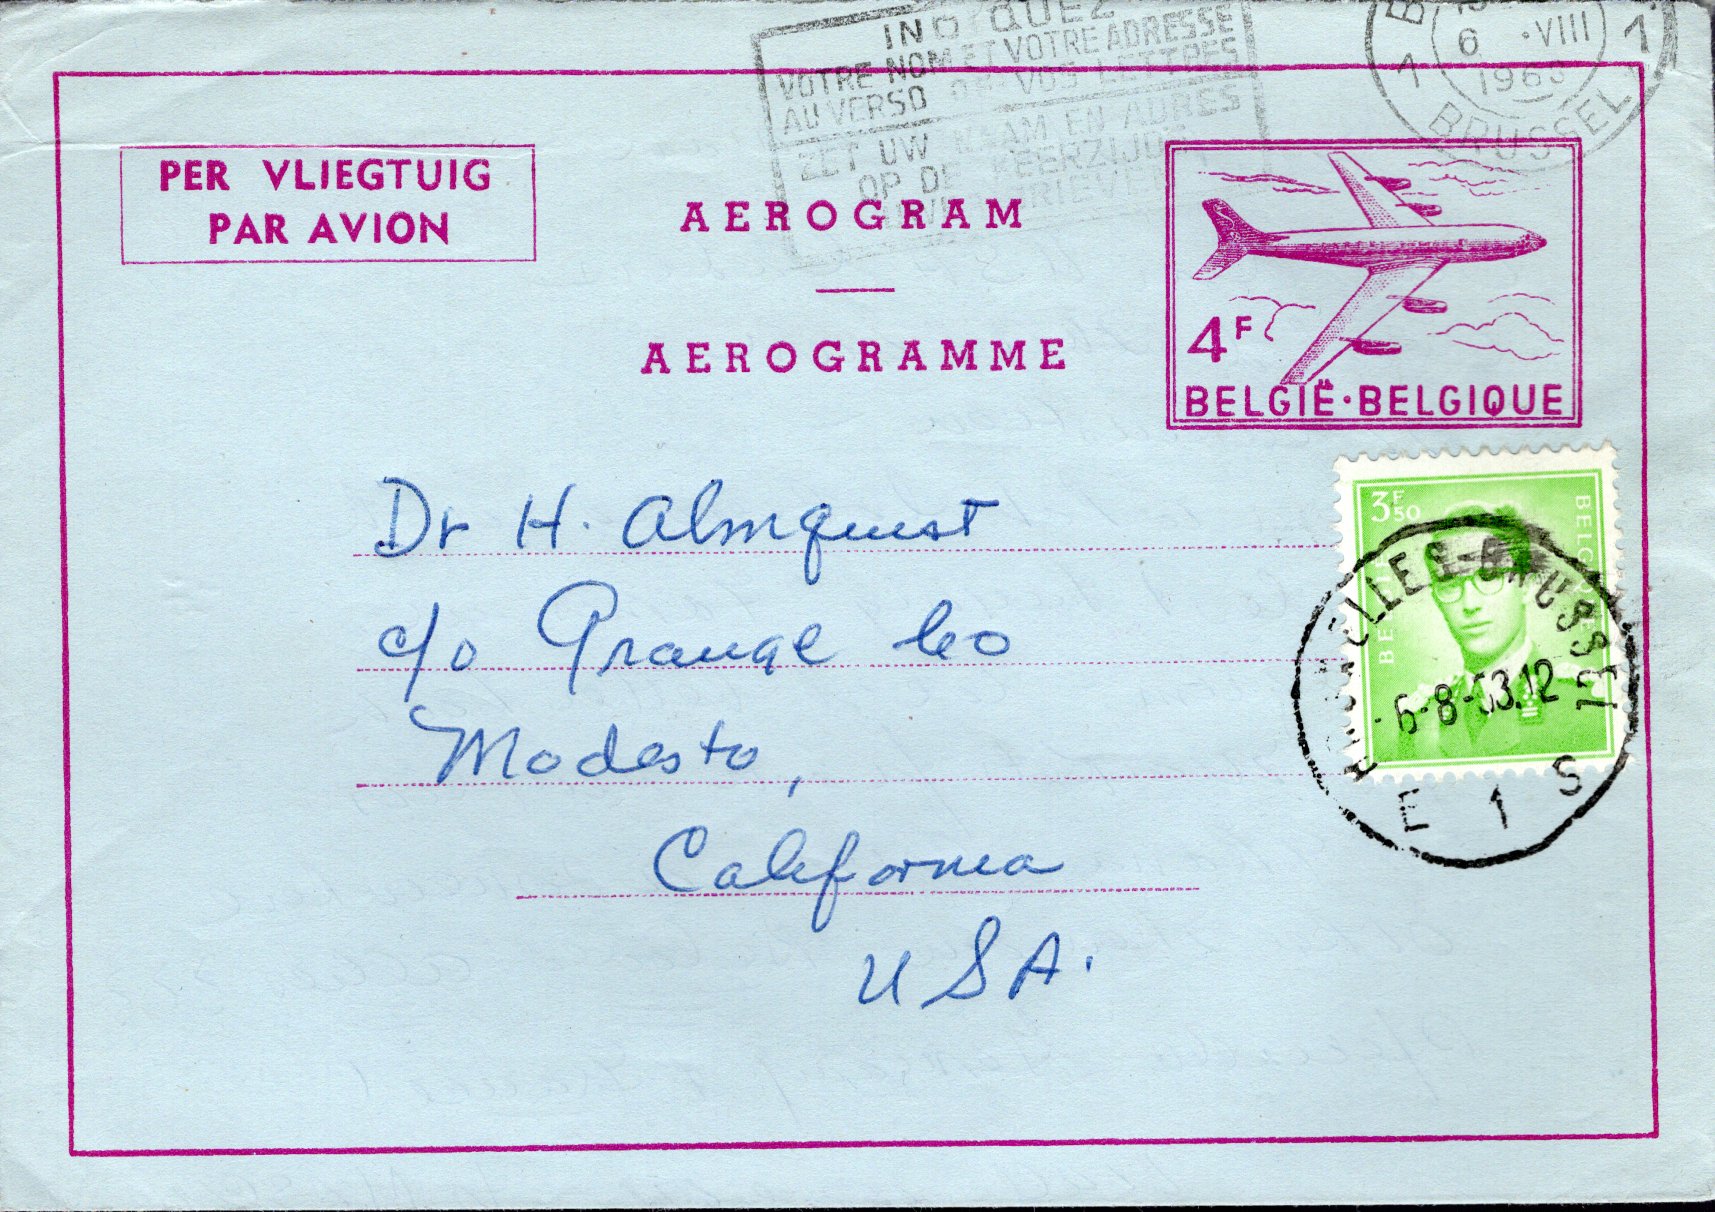 INDIQUEZ
VOTRE NOM ET VOTRE ADRESSE
AU VERSO DE VOS LETTRES
ZET UW NAAM EN ADRES
OP DE KEERZIJDE
6 VIII
1963
1 BRUSSEL 1
PER VLIEGTUIG
PAR AVION
AEROGRAM
AEROGRAMME
4F
BELGIË·BELGIQUE
3F50
BELGIQUE
BELGIE
BRUXELLES-BRUSSEL
-6-8-63.12
E 1 S
Dr H. Almquist
c/o Grange Co
Modesto,
California
USA.